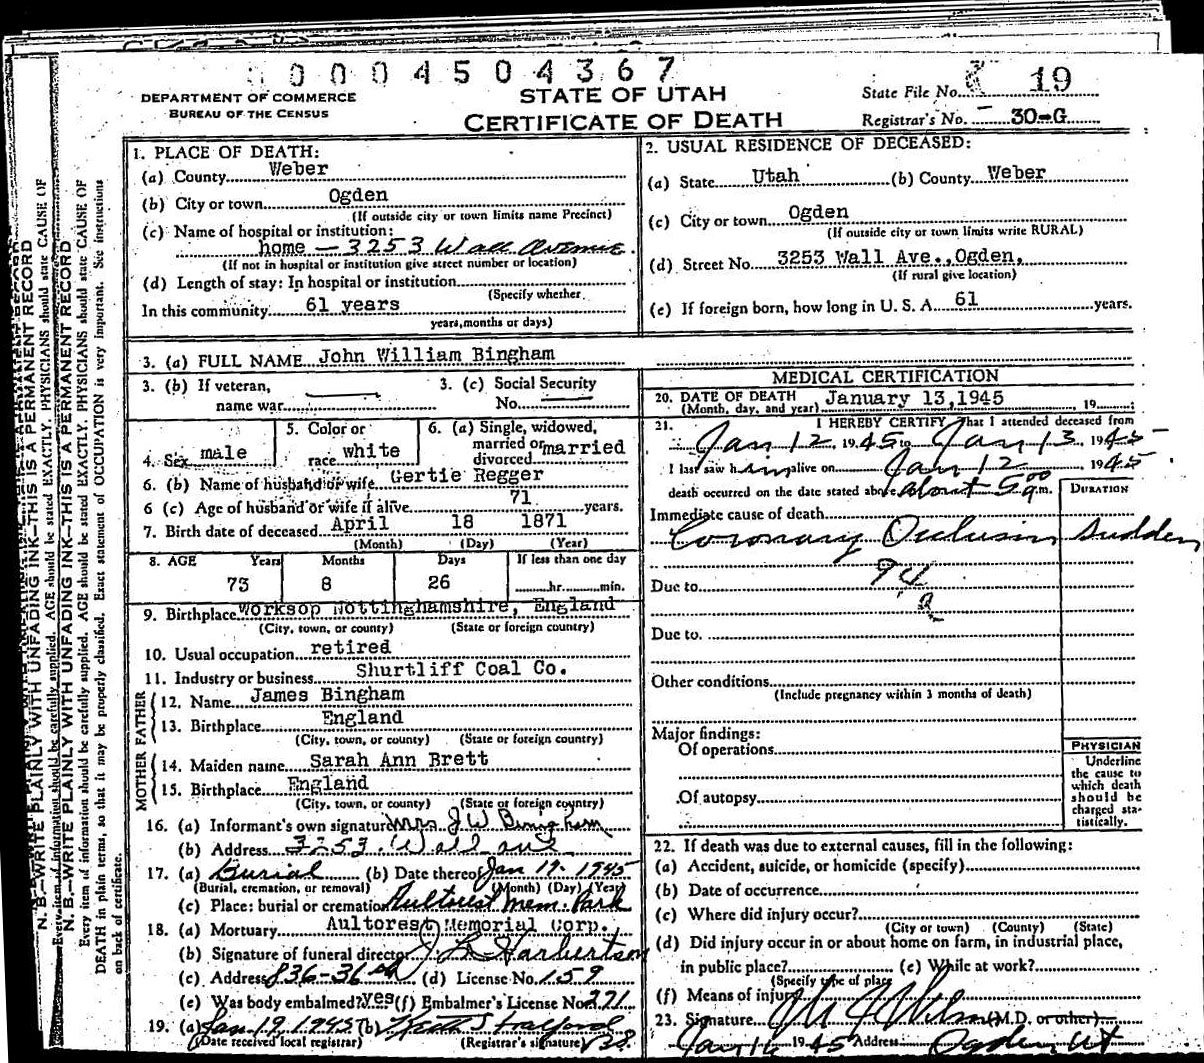 0 0 0 4 5 0 4 3 6 7
DEPARTMENT OF COMMERCE
BUREAU OF THE CENSUS
STATE OF UTAH
CERTIFICATE OF DEATH
State File No. 19
Registrar's No. 30-G
N. B.—WRITE PLAINLY WITH UNFADING INK—THIS IS A PERMANENT RECORD
Every item of information should be carefully supplied. AGE should be stated EXACTLY. PHYSICIANS should state CAUSE OF
N. B.—WRITE PLAINLY WITH UNFADING INK—THIS IS A PERMANENT RECORD
Every item of information should be carefully supplied. AGE should be stated EXACTLY. PHYSICIANS should state CAUSE OF
DEATH in plain terms, so that it may be properly classified. Exact statement of OCCUPATION is very important. See instructions
on back of certificate.
1. PLACE OF DEATH:
(a) County Weber
(b) City or town Ogden
(If outside city or town limits name Precinct)
(c) Name of hospital or institution:
home - 3253 Wall Avenue.
(If not in hospital or institution give street number or location)
(d) Length of stay: In hospital or institution
(Specify whether
In this community 61 years
years, months or days)
2. USUAL RESIDENCE OF DECEASED:
(a) State Utah (b) County Weber
(c) City or town Ogden
(If outside city or town limits write RURAL)
(d) Street No. 3253 Wall Ave., Ogden,
(If rural give location)
(e) If foreign born, how long in U. S. A. 61 years.
3. (a) FULL NAME John William Bingham
3. (b) If veteran,
name war
3. (c) Social Security
No.
4. Sex male
5. Color or
race white
6. (a) Single, widowed,
married or
divorced married
6. (b) Name of husband or wife Gertie Regger
6 (c) Age of husband or wife if alive 71 years.
7. Birth date of deceased April 18 1871
(Month) (Day) (Year)
8. AGE Years Months Days If less than one day
73 8 26 hr. min.
9. Birthplace Worksop Nottinghamshire, England
(City, town, or county) (State or foreign country)
10. Usual occupation retired
11. Industry or business Shurtliff Coal Co.
FATHER
12. Name James Bingham
13. Birthplace England
(City, town, or county) (State or foreign country)
MOTHER
14. Maiden name Sarah Ann Brett
15. Birthplace England
(City, town, or county) (State or foreign country)
16. (a) Informant's own signature Mrs J W Bingham
(b) Address 3253 Wall ave
17. (a) Burial (b) Date thereof Jan 19 1945
(Burial, cremation, or removal) (Month) (Day) (Year)
(c) Place: burial or cremation Aultorest Mem. Park
18. (a) Mortuary Aultorest Memorial Corp.
(b) Signature of funeral director J L Harbertson
(c) Address 836-36 (d) License No. 159
(e) Was body embalmed? yes (f) Embalmer's License No. 271
19. (a) Jan 19 1945 (b)
(Date received local registrar) (Registrar's signature)
MEDICAL CERTIFICATION
20. DATE OF DEATH January 13, 1945, 19
(Month, day, and year)
21. I HEREBY CERTIFY That I attended deceased from
Jan 12 1945 to Jan 13, 1945
I last saw him alive on Jan 12, 1945
death occurred on the date stated above about 5 00 a.m.
DURATION
Immediate cause of death
Coronary Occlusion Sudden
94
a
Due to
Due to.
Other conditions
(Include pregnancy within 3 months of death)
Major findings:
Of operations
Of autopsy
PHYSICIAN
Underline
the cause to
which death
should be
charged sta-
tistically.
22. If death was due to external causes, fill in the following:
(a) Accident, suicide, or homicide (specify)
(b) Date of occurrence
(c) Where did injury occur?
(City or town) (County) (State)
(d) Did injury occur in or about home on farm, in industrial place,
in public place? (e) While at work?
(Specify type of place)
(f) Means of injury
23. Signature (M.D. or other)
Jan 16 1945 Address Ogden Ut